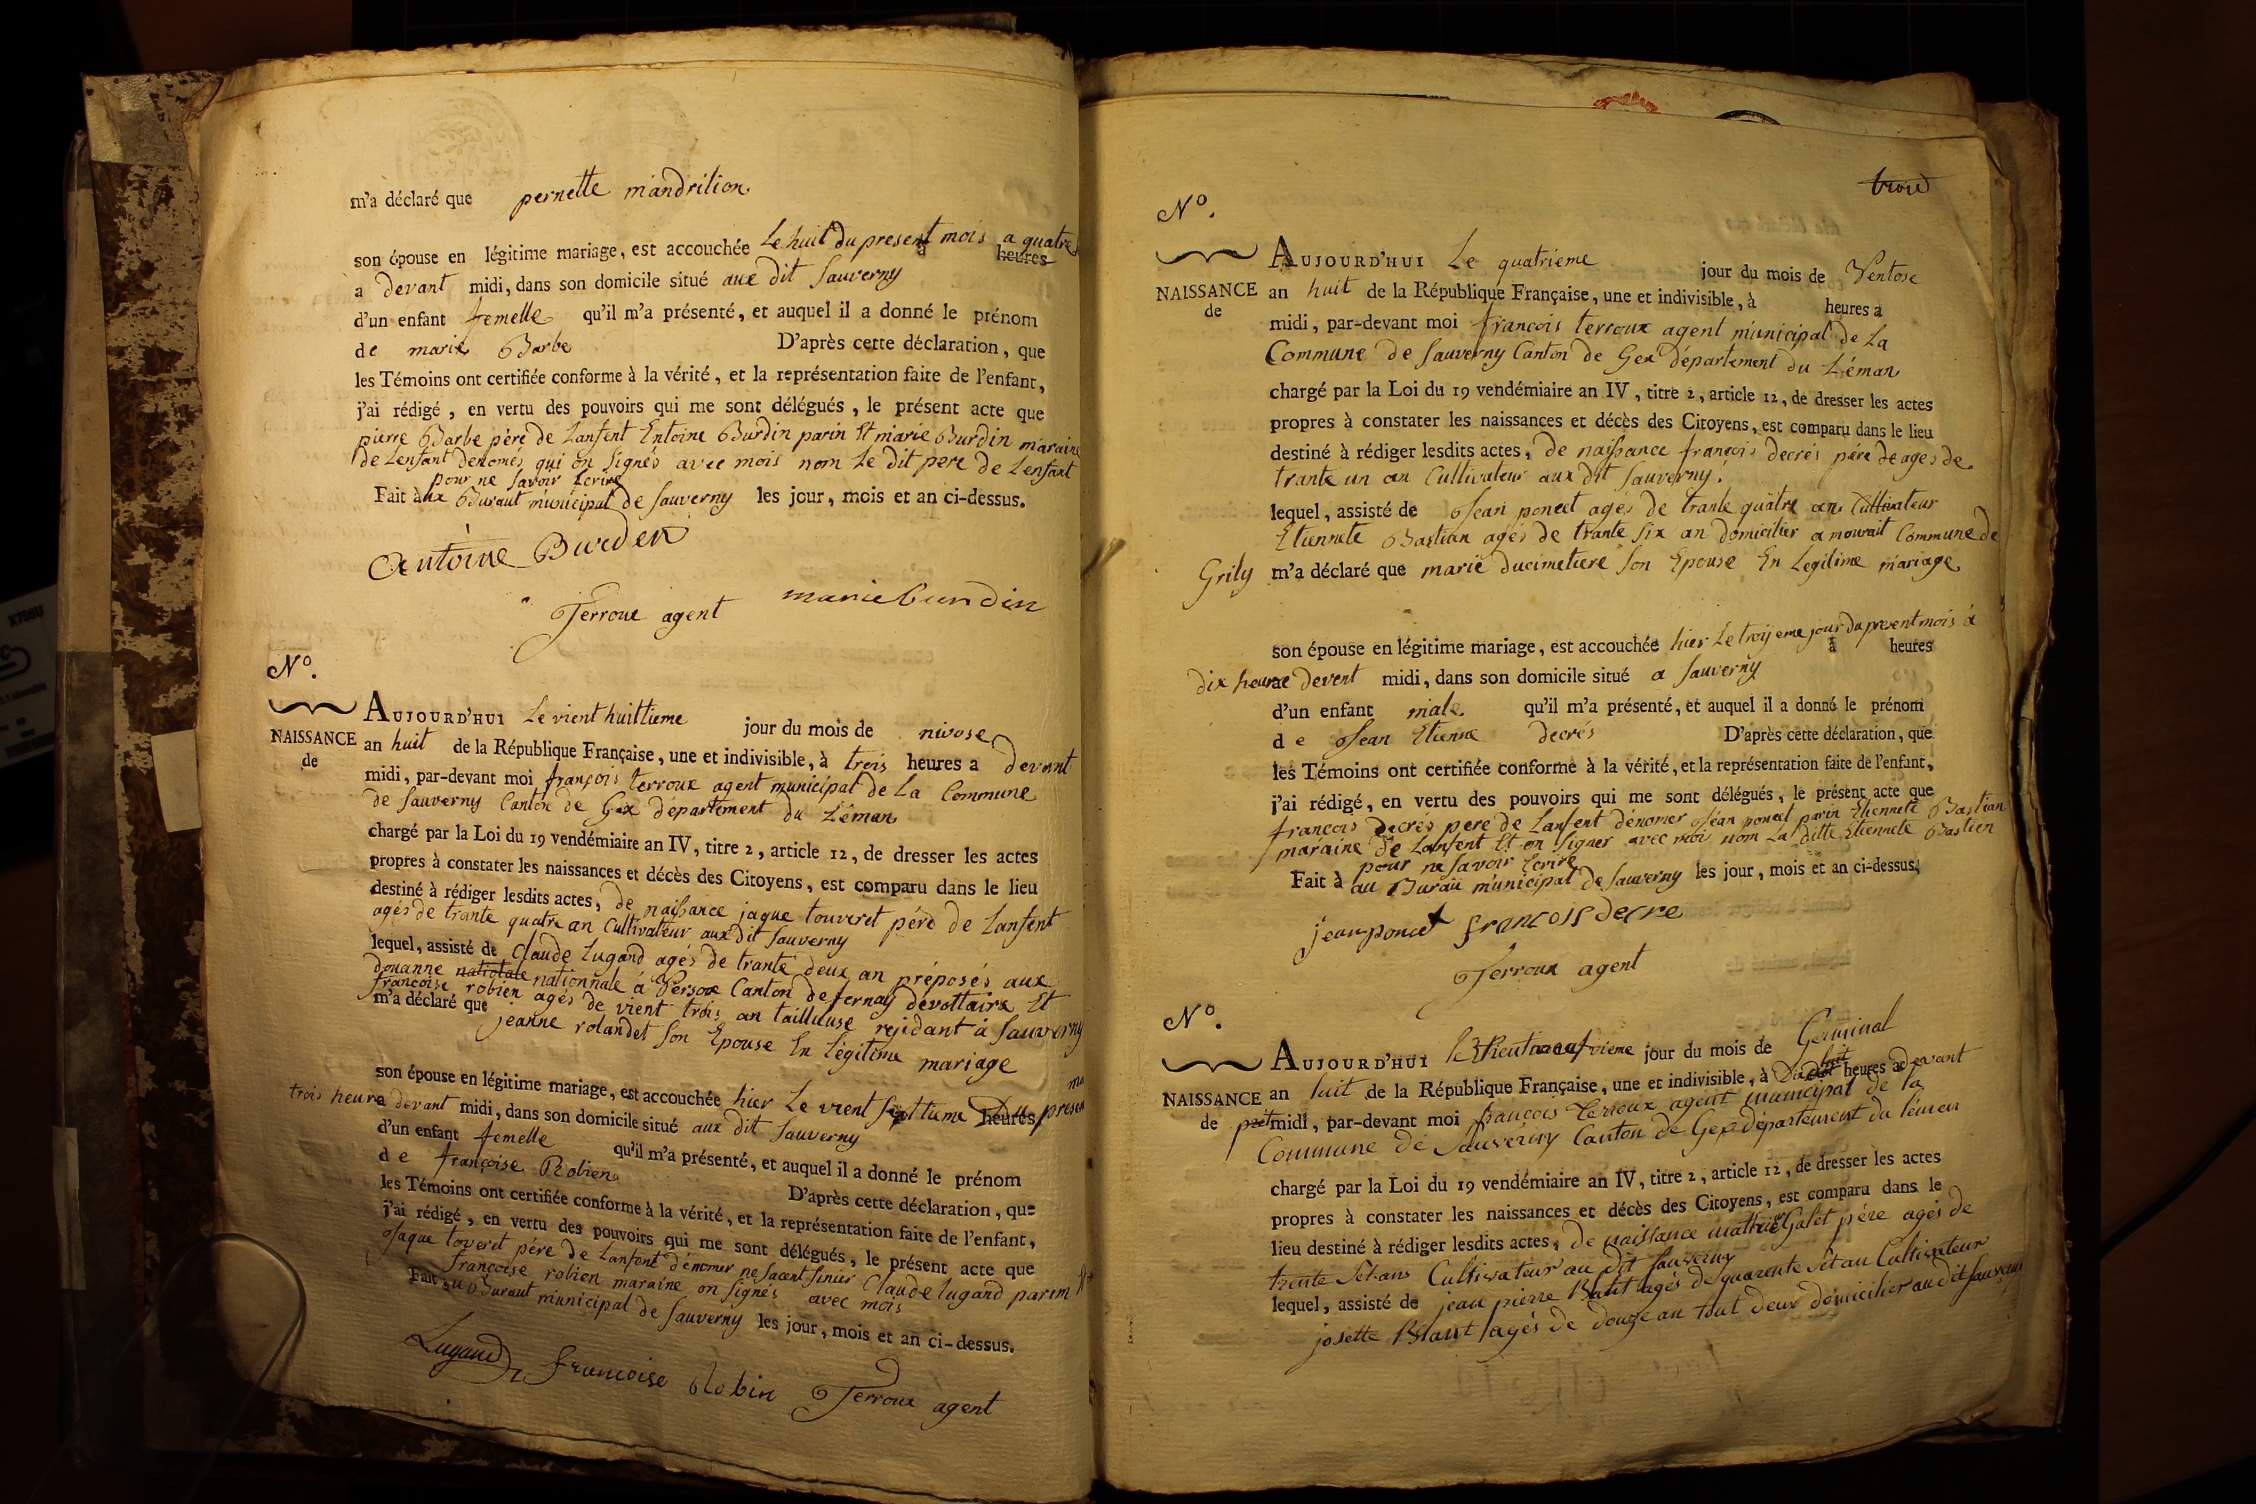 m'a déclaré que pernette mandrilion
son épouse en légitime mariage, est accouchée Le huit du present mois a quatre
à heures
a devant midi, dans son domicile situé aux dit Sauverny
d'un enfant femelle qu'il m'a présenté, et auquel il a donné le prénom
de marie Barbe D'après cette déclaration, que
les Témoins ont certifiée conforme à la vérité, et la représentation faite de l'enfant,
j'ai rédigé, en vertu des pouvoirs qui me sont délégués, le présent acte que
pierre Barbe père de Lanfent Entoine Burdin parin Et marie Burdin maraine
de Lenfant denomés qui on Signés avec mois nom Le dit pere de Lenfant
pour ne savoir Ecrire
Fait à aux Buraut municipal de Sauverny les jour, mois et an ci-dessus.
Antoine Burden
marie burdin
Terroux agent
N°.
AUJOURD'HUI Le vient huittieme jour du mois de nivose
NAISSANCE an huit de la République Française, une et indivisible, à trois heures a devant
de midi, par-devant moi françois terroux agent municipal de La Commune
de Sauverny Canton de Gex département du Léman
chargé par la Loi du 19 vendémiaire an IV, titre 2, article 12, de dresser les actes
propres à constater les naissances et décès des Citoyens, est comparu dans le lieu
destiné à rédiger lesdits actes, de naissance jaque touveret pére de Lanfent
agés de trante quatre an Cultivateur aux dit Sauverny
lequel, assisté de Claude Lugand agés de trante deux an préposés aux
douanne nationale nationnale á Versox Canton de fernay devottaire Et
françoise robien agés de vient trois an tailluuse resident à Sauverny
m'a déclaré que jeanne rolandet Son Epouse En Légitime mariage
son épouse en légitime mariage, est accouchée hier Le vient Septtieme Du presen
heures
trois heure devant midi, dans son domicile situé aux dit Sauverny
d'un enfant femelle qu'il m'a présenté, et auquel il a donné le prénom
de françoise Robien D'après cette déclaration, que
les Témoins ont certifiée conforme à la vérité, et la représentation faite de l'enfant,
j'ai rédigé, en vertu des pouvoirs qui me sont délégués, le présent acte que
Jaque toveret pére de Lanfent dénomer Claude Lugand parin
françoise robien maraine on Signés avec mois
Fait au Buraut municipal de Sauverny les jour, mois et an ci-dessus.
Lugand francoise Robin Terroux agent
trois
N°.
AUJOURD'HUI Le quatrieme jour du mois de Ventose
NAISSANCE an huit de la République Française, une et indivisible, à heures a
de midi, par-devant moi françois terroux agent municipal de La
Commune de Sauverny Canton de Gex département du Léman
chargé par la Loi du 19 vendémiaire an IV, titre 2, article 12, de dresser les actes
propres à constater les naissances et décès des Citoyens, est comparu dans le lieu
destiné à rédiger lesdits actes, de naissance françois decrés pére de agés de
trante un an Cultivateur aux dit Sauverny
lequel, assisté de Jean poncet agés de trante quatre an Cultivateur
Etiennete Bastian agés de trante Six an domicilier a mourait Commune de
Grily m'a déclaré que marie ducimetiere Son Epouse En Legitime mariage
son épouse en légitime mariage, est accouchée hier Le troijeme jour du present mois á
à heures
dix heurae devent midi, dans son domicile situé a Sauverny
d'un enfant male qu'il m'a présenté, et auquel il a donné le prénom
de Jean Etienne decrés D'après cette déclaration, que
les Témoins ont certifiée conforme à la vérité, et la représentation faite de l'enfant,
j'ai rédigé, en vertu des pouvoirs qui me sont délégués, le présent acte que
francois decrés pere de Lanfent denomer Jean poncet parin Etiennete Bastian
maraine de Lanfent Et on Signer avec moi nom La ditte Etiennete Bastien
pour ne savoir Ecrire
Fait à au Buraü municipal de Sauverny les jour, mois et an ci-dessus.
jean poncet francois decre
Terroux agent
N°.
AUJOURD'HUI jour du mois de Germinal
NAISSANCE an huit de la République Française, une et indivisible, à huit heures a devant
de midi, par-devant moi francois Terroux agent municipal de la
Commune de Sauverny Canton de Gex département du léman
chargé par la Loi du 19 vendémiaire an IV, titre 2, article 12, de dresser les actes
propres à constater les naissances et décès des Citoyens, est comparu dans le
lieu destiné à rédiger lesdits actes, de naissance Galet pére agés de
trente Set ans Cultivateur au dit Sauverny
lequel, assisté de jean pierre agés de quarente Set an Cultivateur
josette agés de douze an tout deux domicilier au dit Sauverny